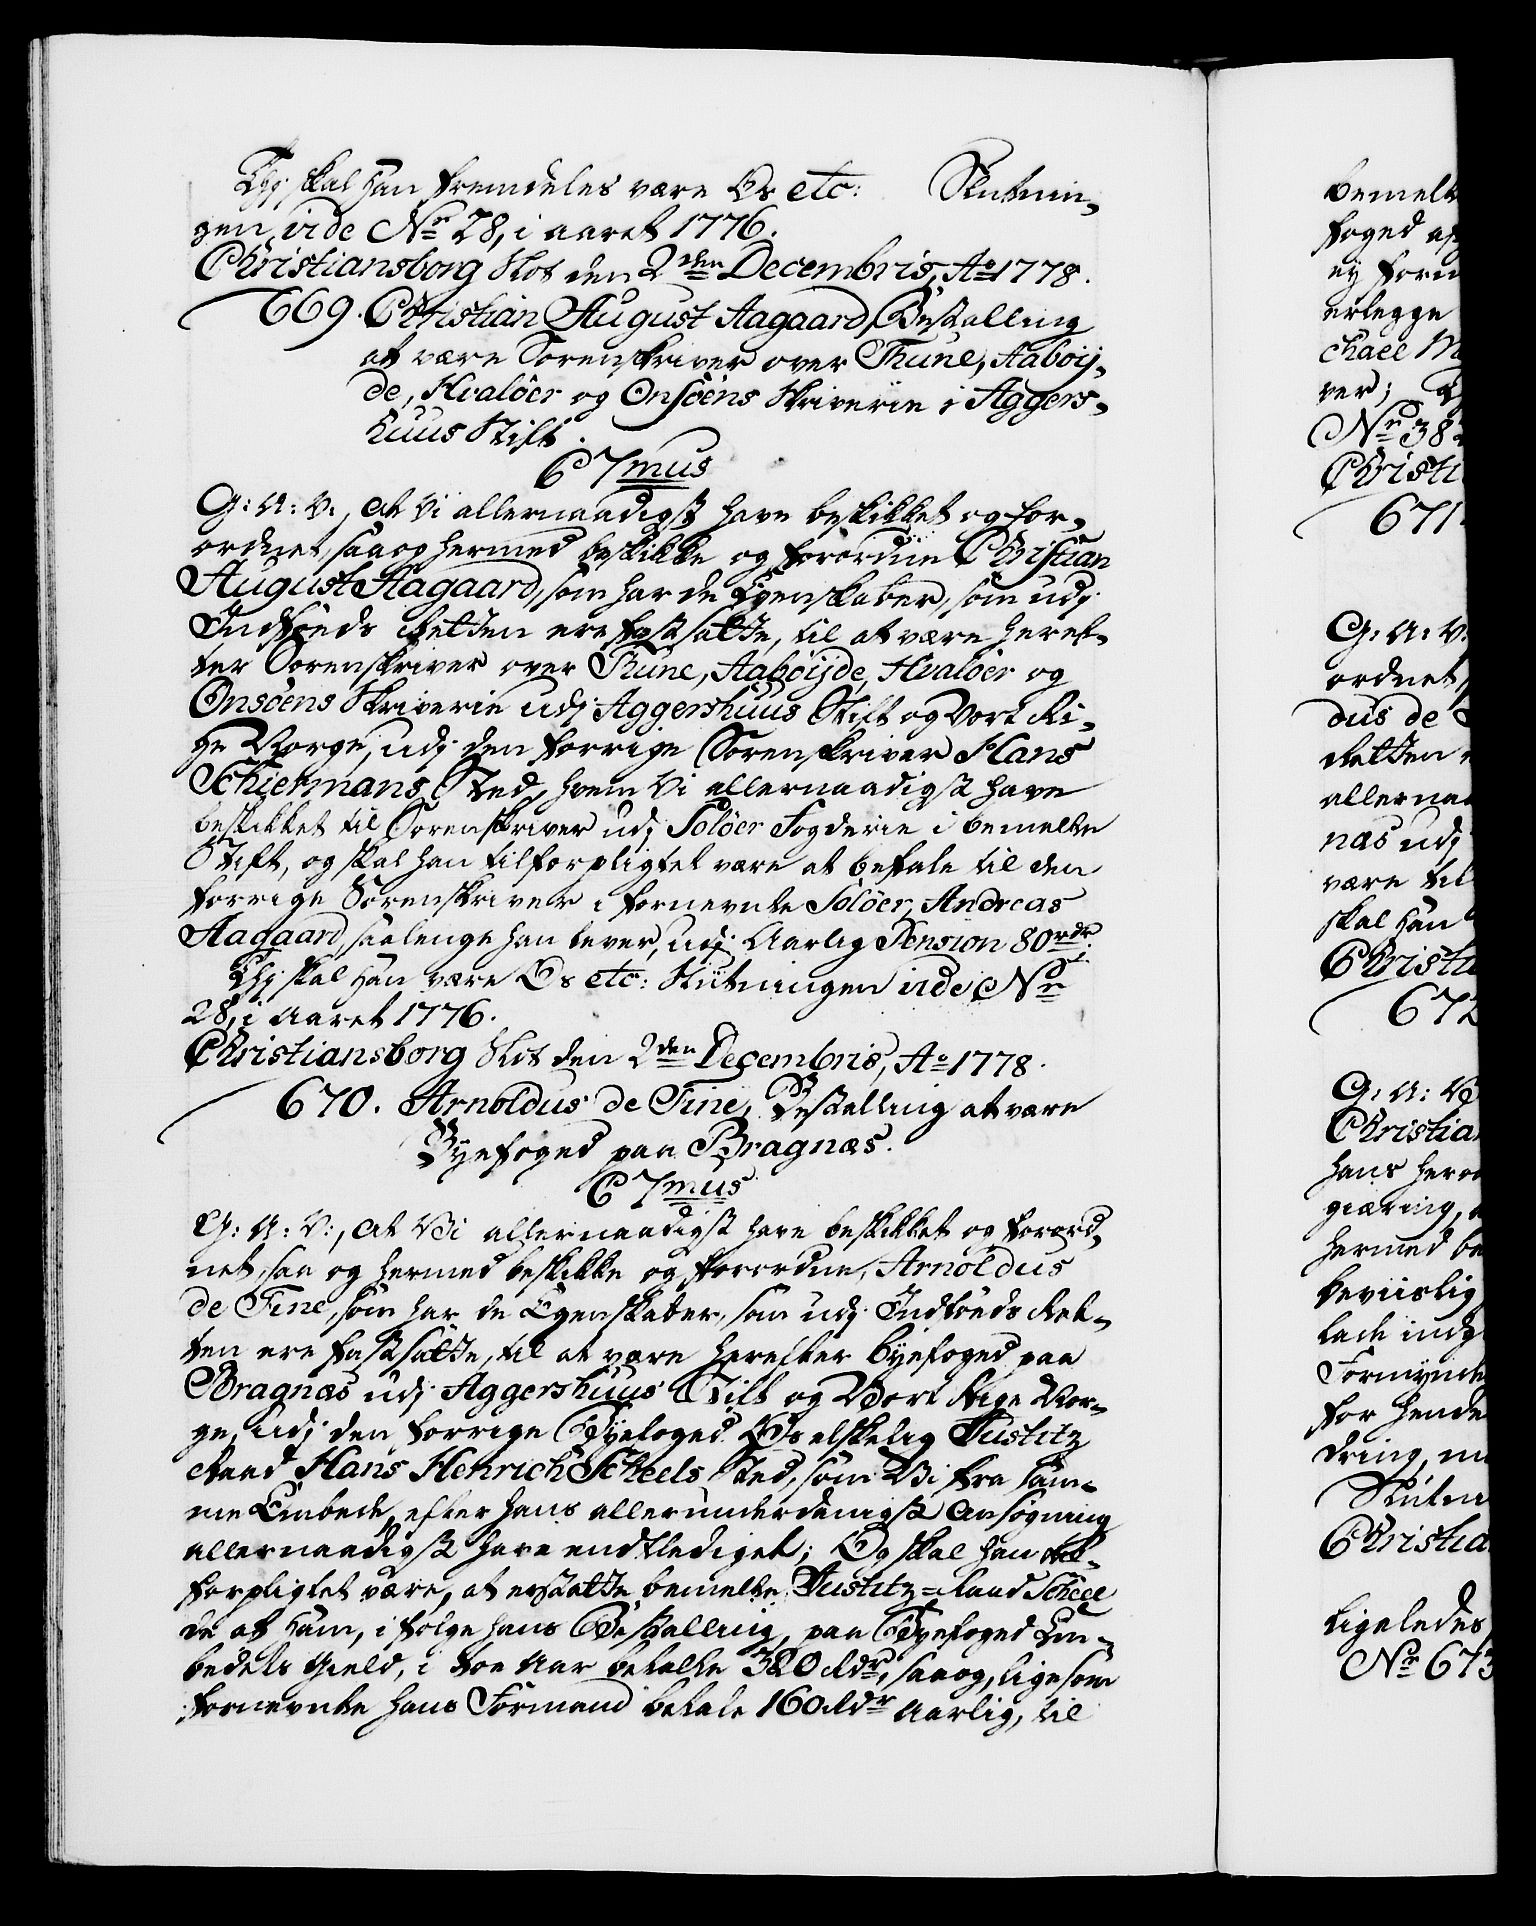 Thj skal han fremdeles være Os etc: Slutnin-
gen vide No 28, i aaret 1776.
Christiansborg Slot den 2den Decembris, Ao 1778.
669. Christian August Aagaard, Bestalling
at være Sorenskriver over Thune, Aaböij-
de, Hvalöer og Onsöens Skriverie i Aggers-
huus Stift.
C 7mus
G: A: V:, at Vi allernaadigst have beskikket og for-
ordnet, saa og hermed beskikke og forordne Christian
August Aagaard, som har de Egenskaber, som udj
Indföds Retten ere fastsatte, til at være heref-
ter Sorenskriver over Thune, Aaböijde, Hvalöer og
Onsöens Skriverie udj Aggershuus Stift og Vort Ri-
ge Norge, udj den forrige Sorenskriver Hans
Schiermans Sted, hvem Vi allernaadigst have
beskikket til Sorenskriver udj Solöer Fogderie i bemelte
Stift, og skal han tilforpligtet være at betale til den
forrige Sorenskriver i fornevnte Solöer, Andreas
Aagaard, saalenge han lever, udj Aarlig Pension 80 rdr.
Thj skal han være Os etc: Slutningen vide No
28, i Aaret 1776.
Christiansborg Slot den 2den Decembris, Ao 1778.
670. Arnoldus de Fine, Bestalling at være
Byefoged paa Bragnæs.
C 7mus
G: A: V:, at Vi allernaadigst have beskikket og forord-
net, saa og hermed beskikke og forordne, Arnoldus
de Fine, som har de Egenskaber, som udj Indföds Ret-
ten ere fastsatte, til at være herefter Byefoged paa
Bragnæs udj Aggershuus Stift og Vort Rige Nor-
ge, udj den forrige Byefoged Os elskelig Justitz
Raad Hans Henrich Scheels Sted, som Vi fra sam-
me Embede, efter hans allerunderdanigst Ansøgning
allernaadigst have endtlediget; Og skal han til-
forpligtet være, at erstatte bemelte Justitz-Raad Scheel
de af ham, i følge hans Bestalling, paa Byefoged Em-
bedets Gield, i toe Aar betalte 320 Rdr, saa og, ligesom
fornevnte hans Formand betale 160 Rdr Aarlig, til
bemelt
foged af
ej form
erlegge
chael M
ver;
No 38
Christi
671.
G: A: V:
ordnet,
dus de
Retten
allernaa
næs udj
være til
skal han
Christi
672
G: A: V
Christian
hans herv
giæring,
hermed be
beviislig
lade indg
Formynde
for hende
dring, m
Slutn
Christia
Ligeledes
No 673